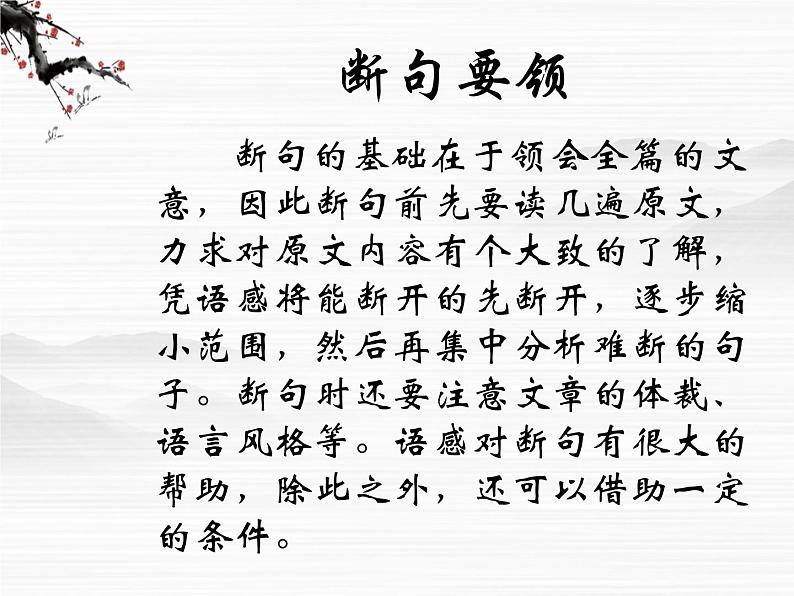 断句要领
断句的基础在于领会全篇的文
意，因此断句前先要读几遍原文，
力求对原文内容有个大致的了解，
凭语感将能断开的先断开，逐步缩
小范围，然后再集中分析难断的句
子。断句时还要注意文章的体裁、
语言风格等。语感对断句有很大的
帮助，除此之外，还可以借助一定
的条件。